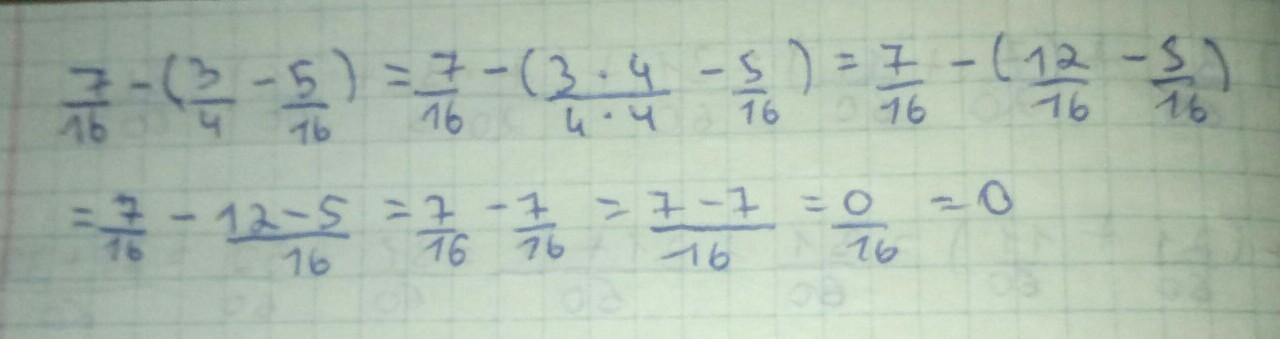 7/16 - (3/4 - 5/16) = 7/16 - (3·4/4·4 - 5/16) = 7/16 - (12/16 - 5/16)
= 7/16 - 12-5/16 = 7/16 - 7/16 = 7-7/16 = 0/16 = 0